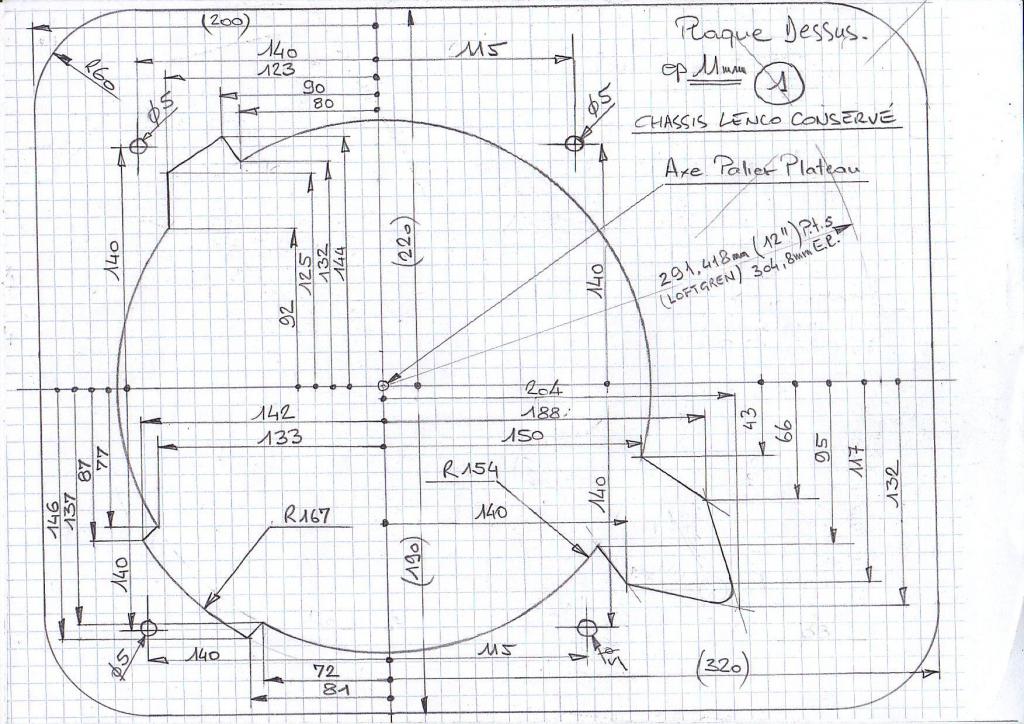 (200)
Plaque Dessus.
ep 11mm
1
CHASSIS LENCO CONSERVÉ
R60
140
115
123
90
80
Ø5
Ø5
Axe Palier Plateau
291,418mm (12") P.t.S
(LOFTGREN) 304,8mm E.E.
140
(220)
140
92
125
132
144
204
142
188
133
150
43
66
95
117
132
87
77
146
137
R154
140
140
R167
140
(190)
Ø5
140
115
Ø5
(320)
72
81